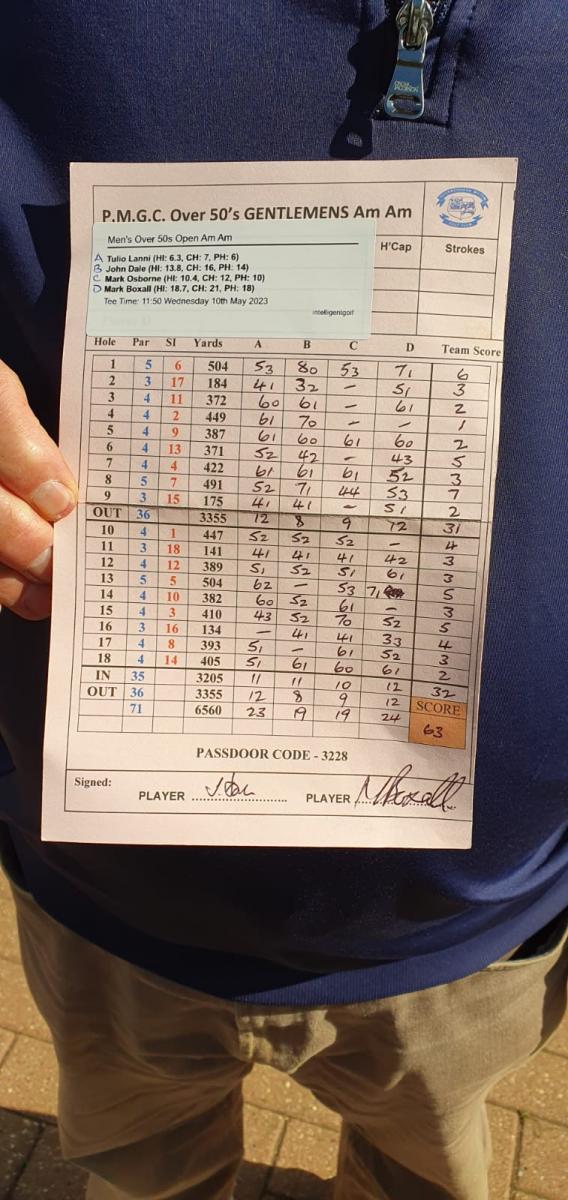 P.M.G.C. Over 50's GENTLEMENS Am Am
Men's Over 50s Open Am Am
A Tulio Lanni (HI: 6.3, CH: 7, PH: 6)
B John Dale (HI: 13.8, CH: 16, PH: 14)
C Mark Osborne (HI: 10.4, CH: 12, PH: 10)
D Mark Boxall (HI: 18.7, CH: 21, PH: 18)
Tee Time: 11:50 Wednesday 10th May 2023
intelligentgolf
H'Cap Strokes
Hole Par SI Yards A B C D Team Score
1 5 6 504 53 80 53 71 6
2 3 17 184 41 32 - 51 3
3 4 11 372 60 61 - 61 2
4 4 2 449 61 70 - - 1
5 4 9 387 61 60 61 60 2
6 4 13 371 52 42 - 43 5
7 4 4 422 61 61 61 52 3
8 5 7 491 52 71 44 53 7
9 3 15 175 41 41 - 51 2
OUT 36 3355 12 8 9 12 31
10 4 1 447 52 52 52 - 4
11 3 18 141 41 41 41 42 3
12 4 12 389 51 52 51 61 3
13 5 5 504 62 - 53 71 5
14 4 10 382 60 52 61 - 3
15 4 3 410 43 52 70 52 5
16 3 16 134 - 41 41 33 4
17 4 8 393 51 - 61 52 3
18 4 14 405 51 61 60 61 2
IN 35 3205 11 11 10 12 32
OUT 36 3355 12 8 9 12 SCORE
71 6560 23 19 19 24 63
PASSDOOR CODE - 3228
Signed:
PLAYER PLAYER MBoxall